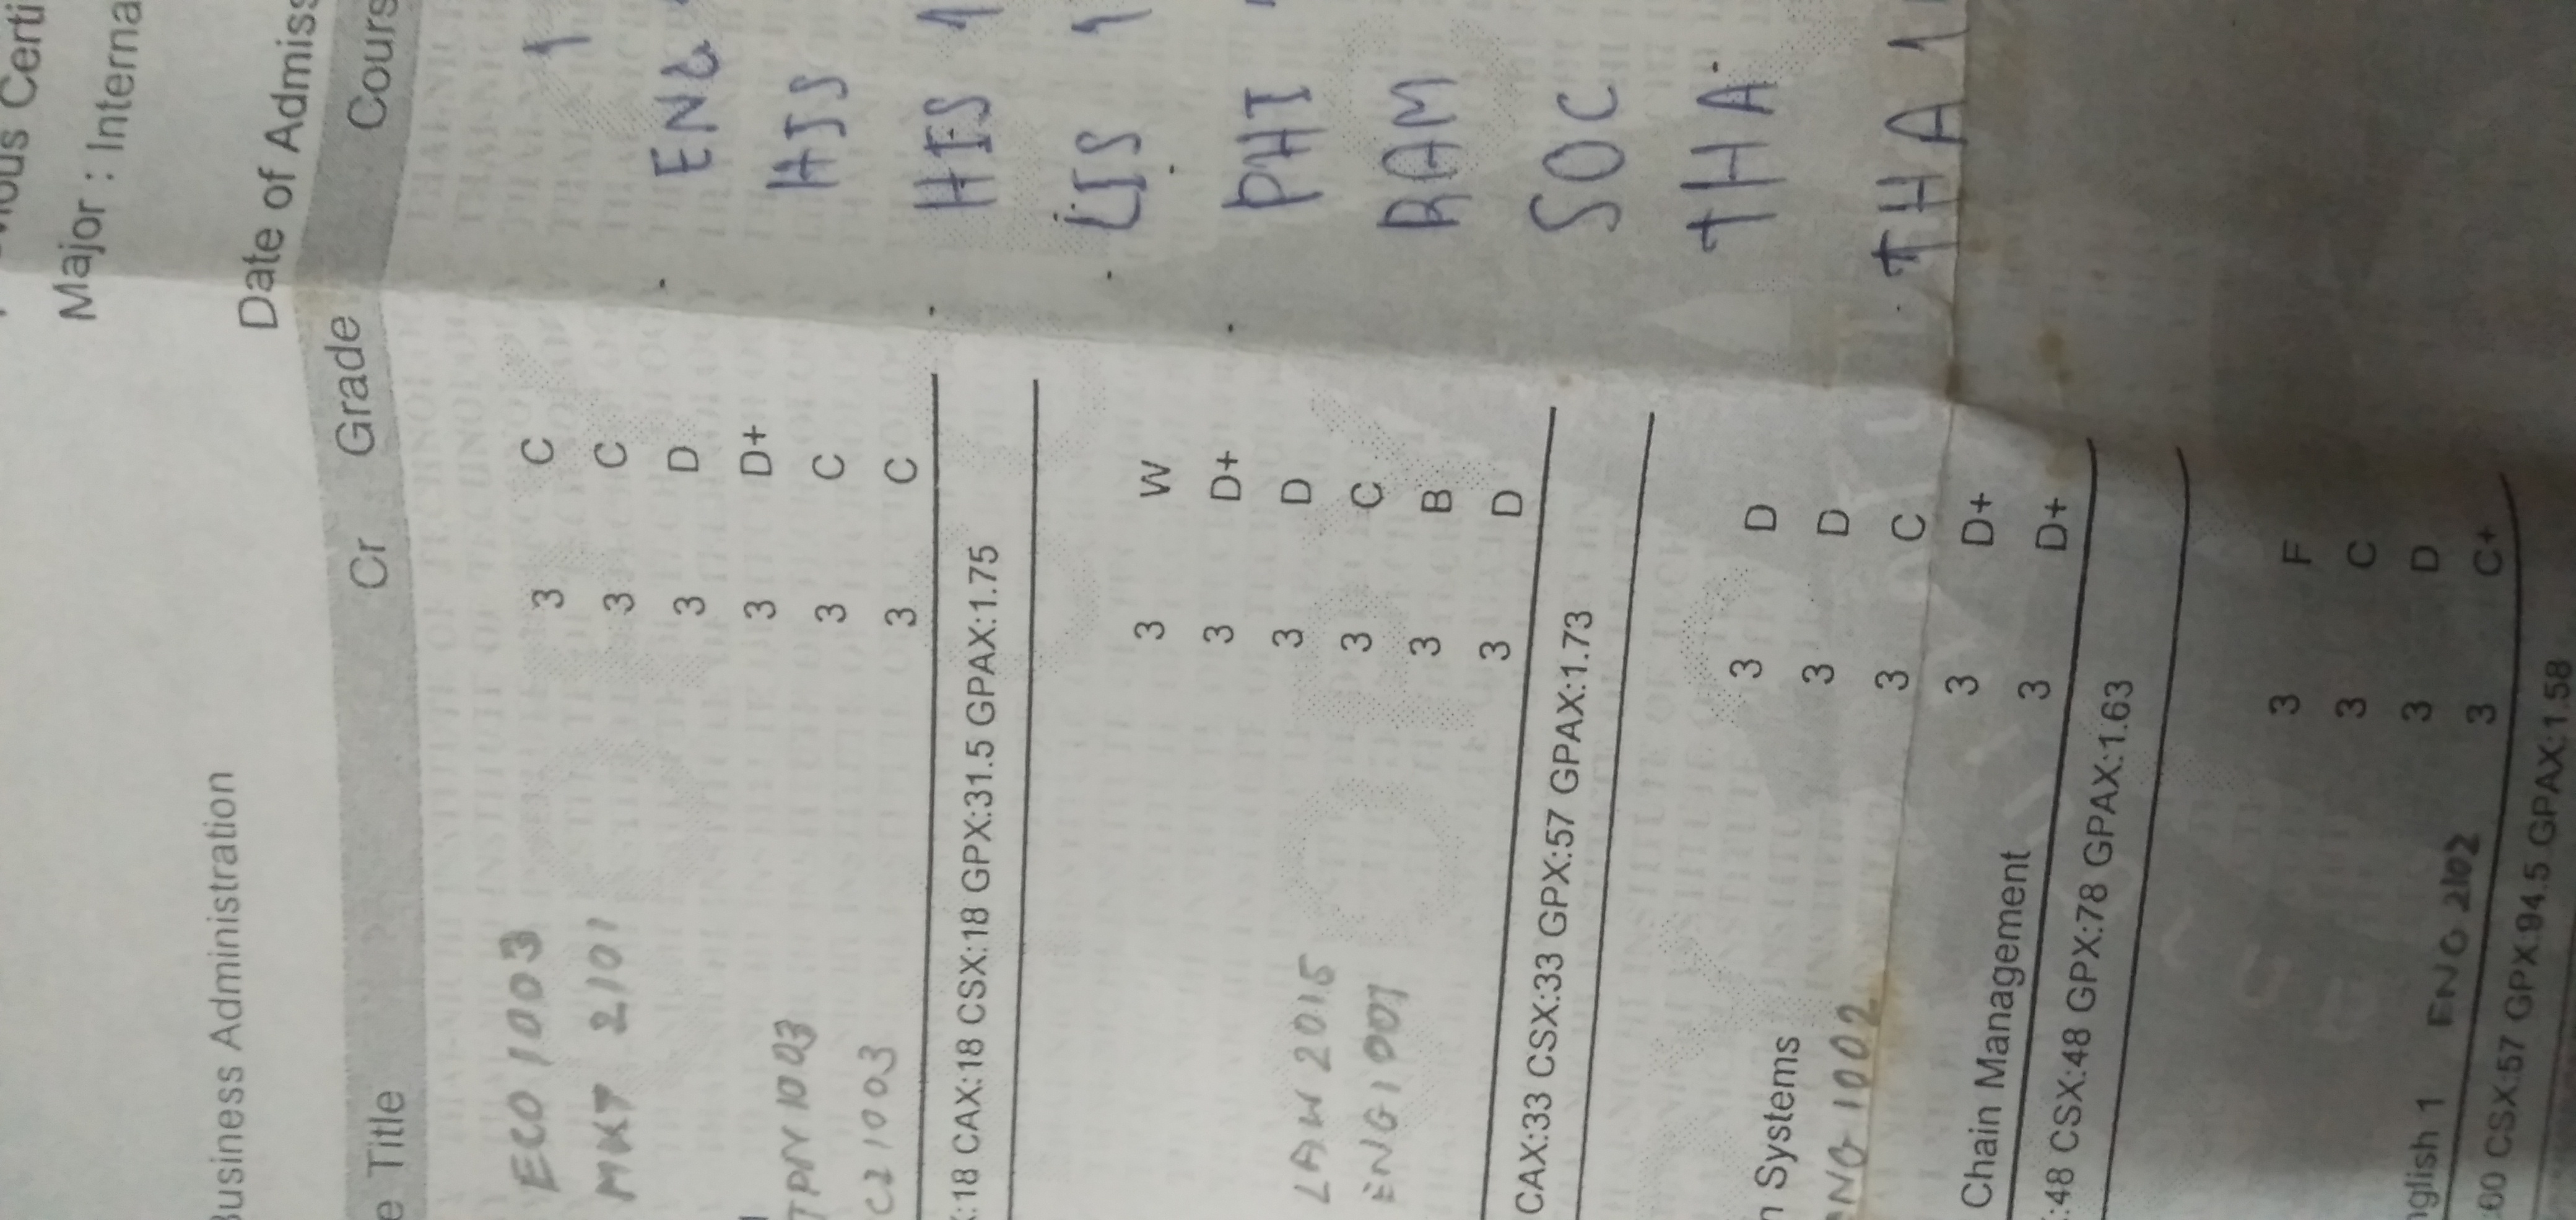 Major : Interna
Business Administration
Date of Admiss
Title Cr Grade Cours
ECO 1003 3 C
MKT 2101 3 C
3 D ENG
JPN 1003 3 D+ HIS
C21003 3 C
3 C HIS 1
:18 CAX:18 CSX:18 GPX:31.5 GPAX:1.75
LIS 1
3 W
3 D+ PHI
LAW 2015 3 D
ENG 1001 3 C RAM
3 B
3 D
CAX:33 CSX:33 GPX:57 GPAX:1.73
SOC
THA
Systems 3 D
ENG 1002 3 D
3 C THA 1
Chain Management 3 D+
3 D+
:48 CSX:48 GPX:78 GPAX:1.63
3 F
3 C
English 1 ENG 2102 3 D
3 C+
:60 CSX:57 GPX:94.5 GPAX:1.58